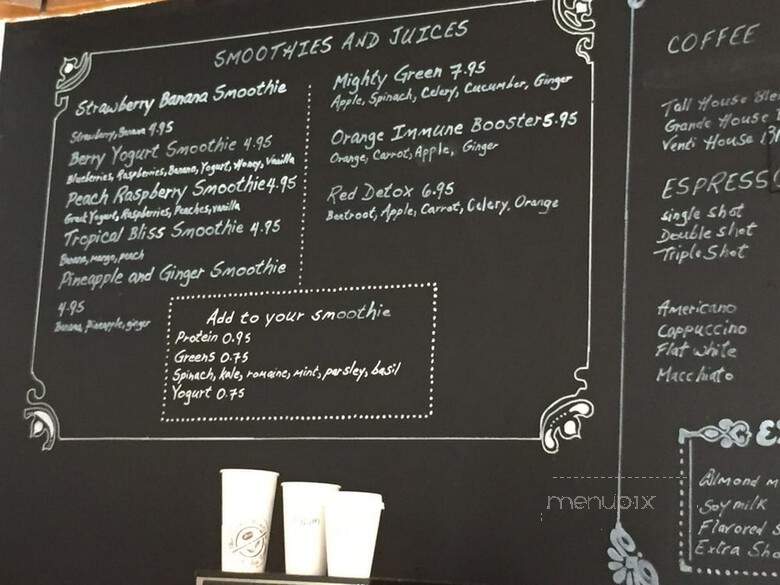 SMOOTHIES AND JUICES
Strawberry Banana Smoothie
Strawberry, Banana 4.95
Berry Yogurt Smoothie 4.95
Blueberries, Raspberries, Banana, Yogurt, Honey, Vanilla
Peach Raspberry Smoothie 4.95
Greek Yogurt, Raspberries, Peaches, vanilla
Tropical Bliss Smoothie 4.95
Banana, mango, peach
Pineapple and Ginger Smoothie
4.95
Banana, Pineapple, ginger
Mighty Green 7.95
Apple, Spinach, Celery, Cucumber, Ginger
Orange Immune Booster 5.95
Orange, Carrot, Apple, Ginger
Red Detox 6.95
Beetroot, Apple, Carrot, Celery, Orange
Add to your smoothie
Protein 0.95
Greens 0.75
Spinach, kale, romaine, mint, parsley, basil
Yogurt 0.75
COFFEE
Tall House Ble
Grande House
Venti House
ESPRESS
single shot
Double shot
Triple Shot
Americano
Cappuccino
Flat white
Macchiato
Almond m
Soy milk
Flavored s
Extra Sho
menupix